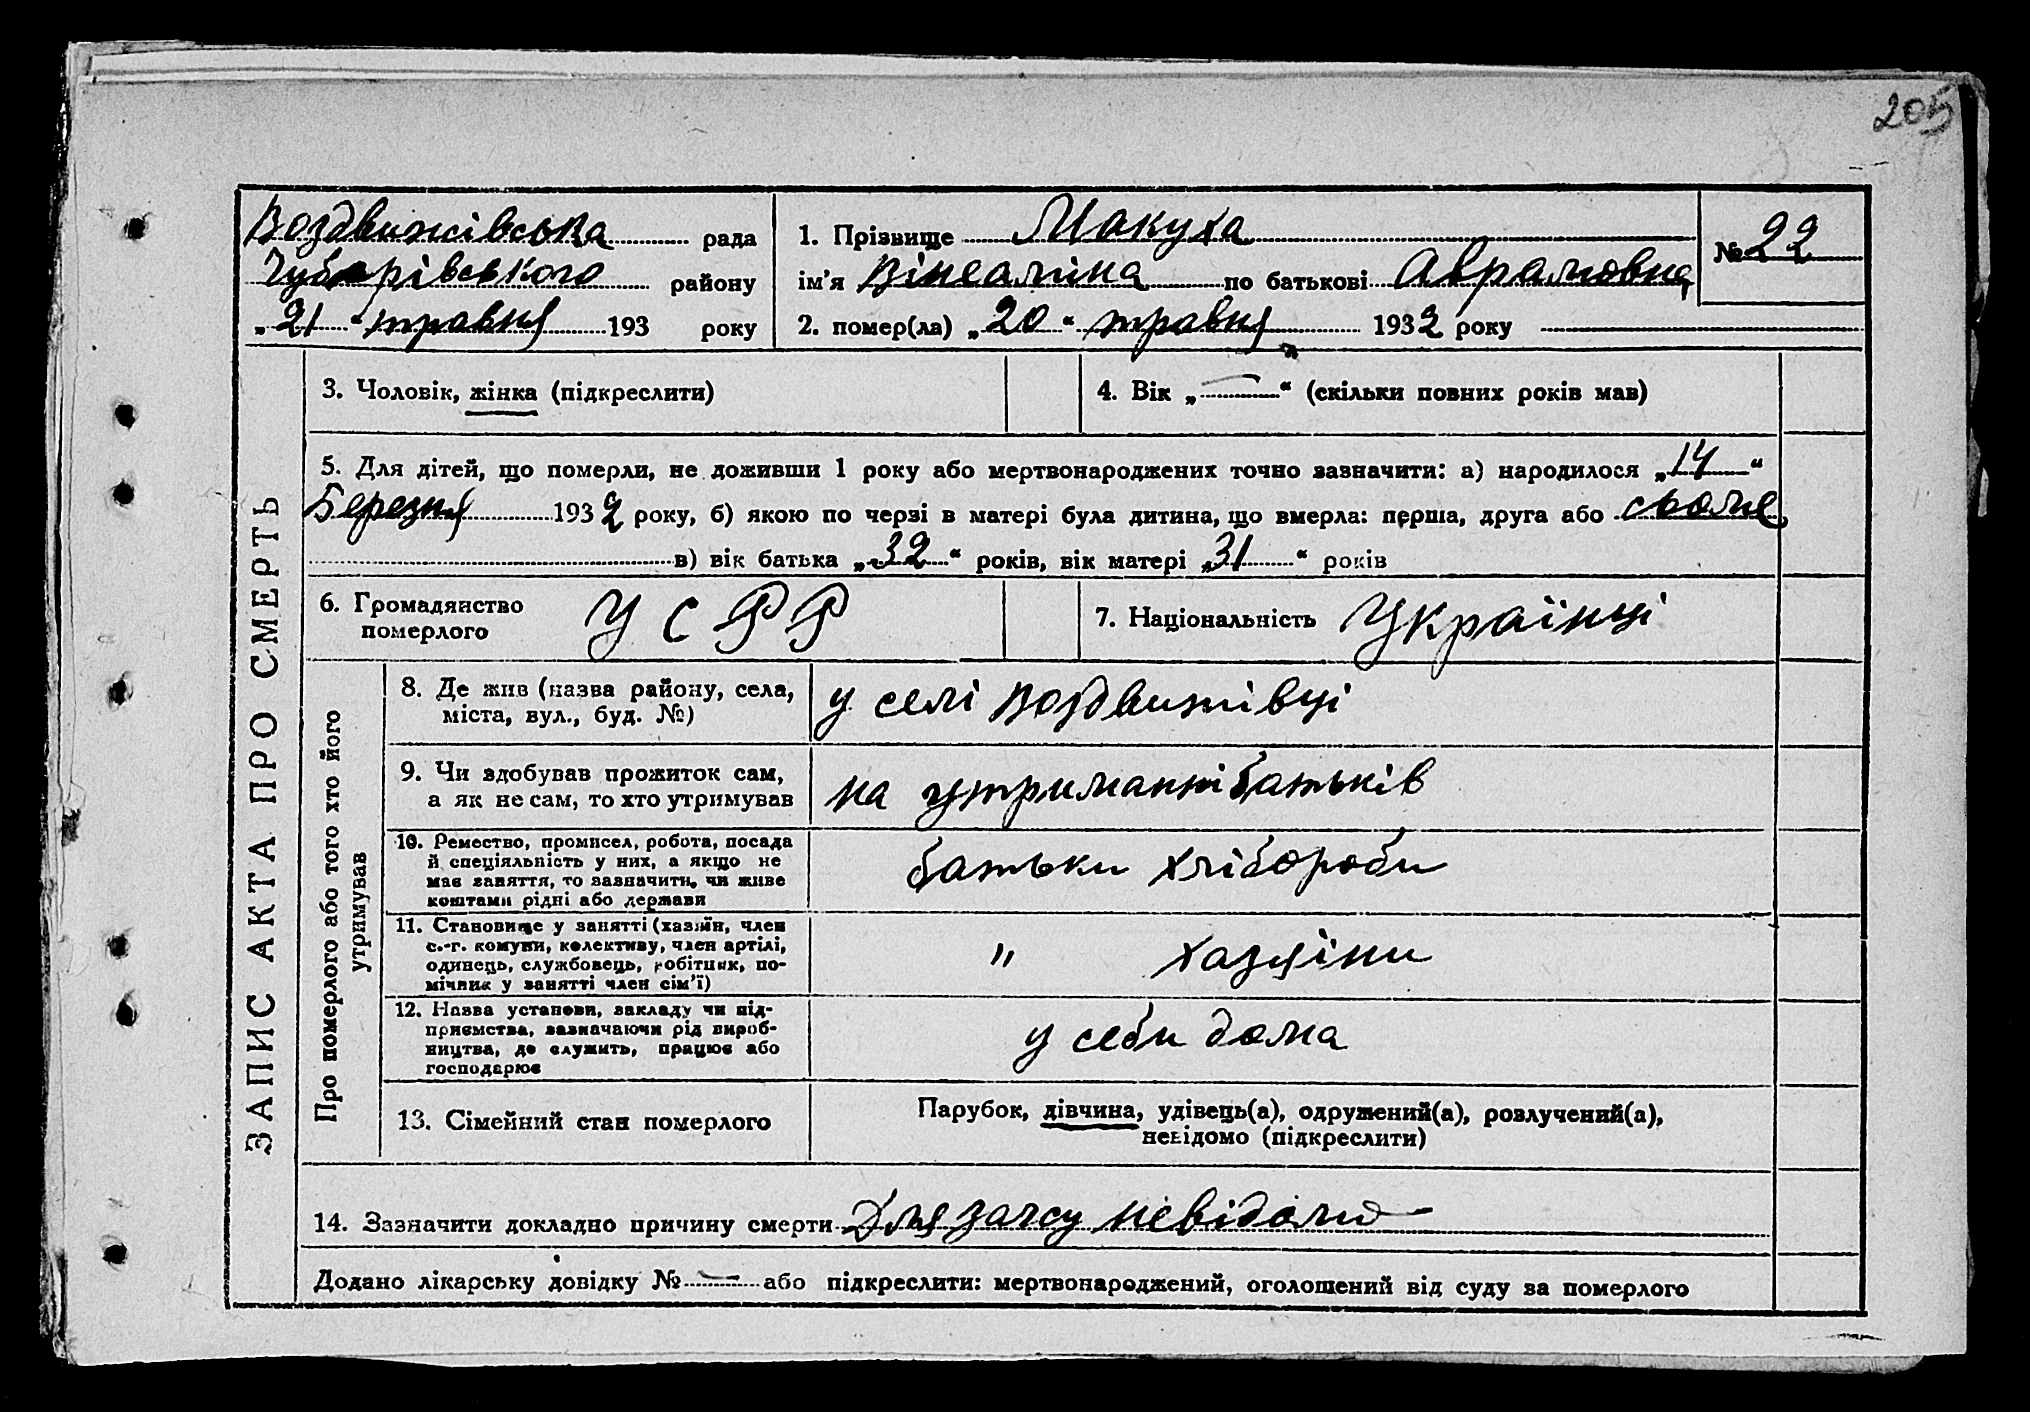 205
Воздвижівська рада
Чубарівського району
„21“ травня 193 року
1. Прізвище Макуха
ім'я по батькові Аврамовна
2. помер(ла) „20“ травня 1932 року
№ 22
ЗАПИС АКТА ПРО СМЕРТЬ
3. Чоловік, жінка (підкреслити)
4. Вік „—“ (скільки повних років мав)
5. Для дітей, що померли, не доживши 1 року або мертвонароджених точно зазначити: а) народилося „14“
Березня 1932 року, б) якою по черзі в матері була дитина, що вмерла: перша, друга або сьоме
в) вік батька „32“ років, вік матері „31“ років
6. Громадянство
померлого
УСРР
7. Національність Українці
Про померлого або того хто його
утримував
8. Де жив (назва району, села,
міста, вул., буд. №)
у селі Воздвижівці
9. Чи здобував прожиток сам,
а як не сам, то хто утримував
на утриманні батьків
10. Ремество, промисел, робота, посада
й спеціяльність у них, а якщо не
має заняття, то зазначити, чи живе
коштами рідні або держави
батьки хлібороби
11. Становище у занятті (хазяїн, член
с.-г. комуни, колективу, член артілі,
одинець, службовець, робітник, по-
мічник у занятті член сім'ї)
" хазяїни
12. Назва установи, закладу чи під-
приємства, зазначаючи рід вироб-
ництва, де служить, працює або
господарює
у себи дома
13. Сімейний стан померлого
Парубок, дівчина, удівець(а), одружений(а), розлучений(а),
невідомо (підкреслити)
14. Зазначити докладно причину смерти Для загсу невідомо
Додано лікарську довідку № — або підкреслити: мертвонароджений, оголошений від суду за померлого